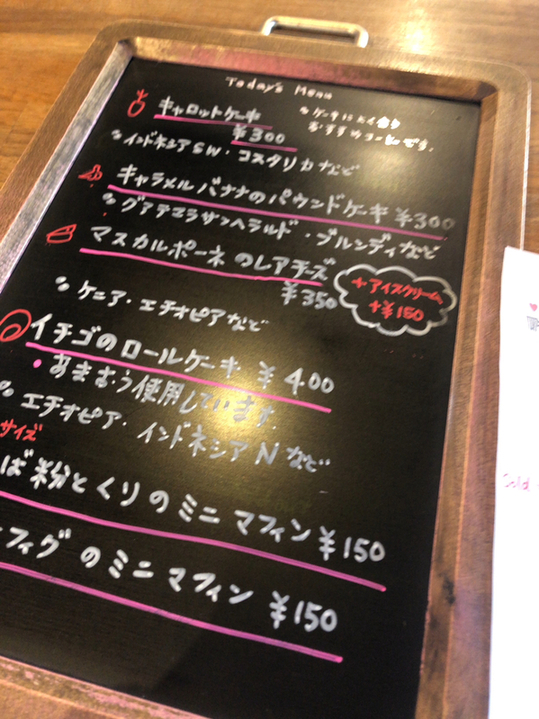 Today's Menu
キャロットケーキ
¥300
ケーキに
おすすめコーヒーです。
インドネシアSW・コスタリカなど
キャラメルバナナのパウンドケーキ ¥300
グアテマラサンヘラルド・ブルンディなど
マスカルポーネのレアチーズ
¥350
+アイスクリーム
+¥150
ケニア・エチオピアなど
イチゴのロールケーキ ¥400
・あまおう使用しています。
エチオピア・インドネシアNなど
サイズ
ば粉とくりのミニマフィン ¥150
フィグのミニマフィン ¥150